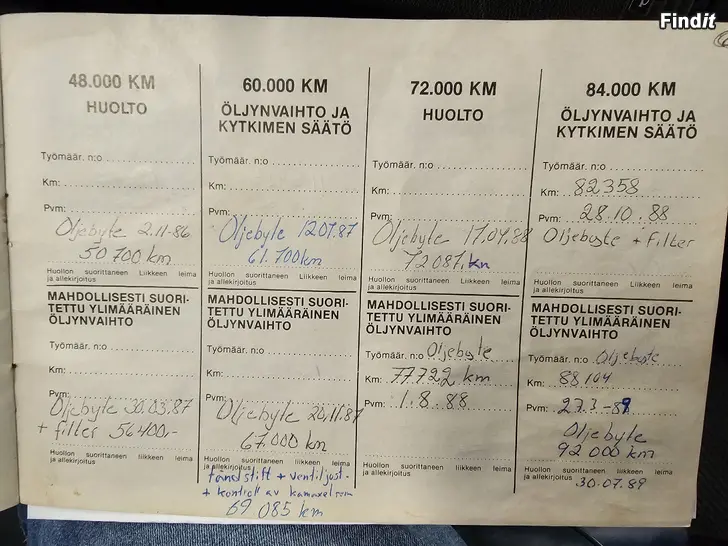 Findit
48.000 KM
HUOLTO
Työmäär. n:o
Km:
Pvm:
Oljebyte 2.11-86
50 700 km
Huollon suorittaneen Liikkeen leima
ja allekirjoitus
MAHDOLLISESTI SUORI-
TETTU YLIMÄÄRÄINEN
ÖLJYNVAIHTO
Työmäär. n:o
Km:
Pvm:
Oljebyte 30.03.87
+ filter 56400,-
Huollon suorittaneen liikkeen leima
ja allekirjoitus
60.000 KM
ÖLJYNVAIHTO JA
KYTKIMEN SÄÄTÖ
Työmäär. n:o
Km:
Pvm:
Oljebyte 12.07.87
61.700 km
Huollon suorittaneen Liikkeen leima
ja allekirjoitus
MAHDOLLISESTI SUORI-
TETTU YLIMÄÄRÄINEN
ÖLJYNVAIHTO
Työmäär. n:o
Km:
Pvm:
Oljebyte 20.11.87
67.000 km
Huollon suorittaneen liikkeen leima
ja allekirjoitus
tändstift + ventiljust.
+ kontroll av kamaxelrem
69 085 km
72.000 KM
HUOLTO
Työmäär. n:o
Km:
Pvm:
Oljebyte 17.04.88
72087 km
Huollon suorittaneen Liikkeen leima
ja allekirjoitus
MAHDOLLISESTI SUORI-
TETTU YLIMÄÄRÄINEN
ÖLJYNVAIHTO
Työmäär. n:o Oljebyte
Km: 77722 km
Pvm: 1.8.88
Huollon suorittaneen liikkeen leima
ja allekirjoitus
84.000 KM
ÖLJYNVAIHTO JA
KYTKIMEN SÄÄTÖ
Työmäär. n:o
Km: 82358
Pvm: 28.10.88
Oljebyte + Filter
Huollon suorittaneen Liikkeen leima
ja allekirjoitus
MAHDOLLISESTI SUORI-
TETTU YLIMÄÄRÄINEN
ÖLJYNVAIHTO
Työmäär. n:o Oljebyte
Km: 88104
Pvm: 27.3-89
Oljebyte
92000 km
Huollon suorittaneen liikkeen leima
ja allekirjoitus
30.07.89